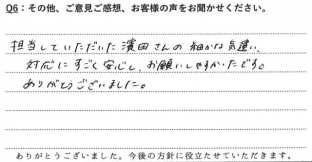 Q6：その他、ご意見ご感想、お客様の声をお聞かせください。
担当していただいた濱田さんの細かな気遣い、
対応にすごく安心し、お願いしやすかったです。
ありがとうございました。
ありがとうございました。今後の方針に役立たせていただきます。